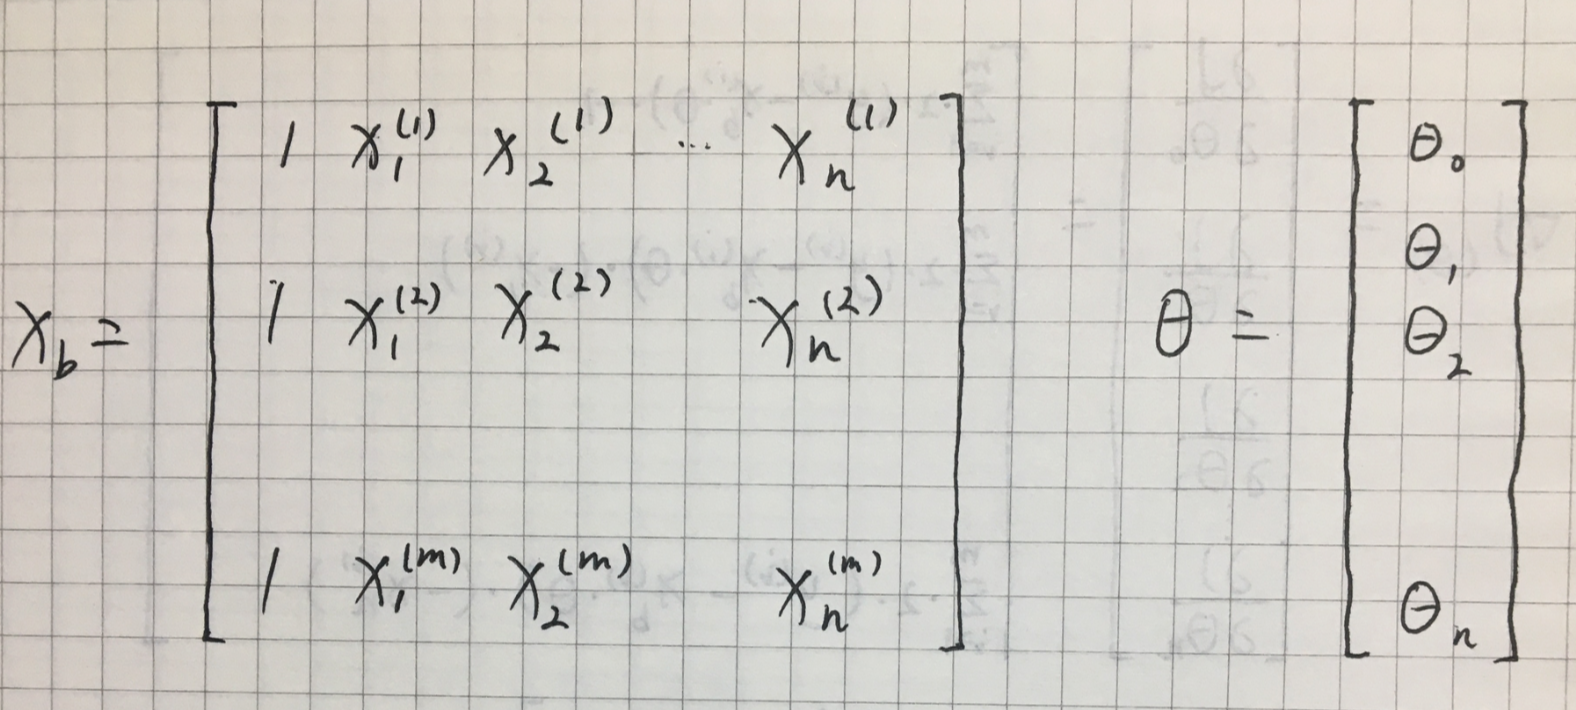 X_b = [ 1 X_1^(1) X_2^(1) ... X_n^(1) ; 1 X_1^(2) X_2^(2) X_n^(2) ; 1 X_1^(m) X_2^(m) X_n^(m) ]
θ = [ θ_0 ; θ_1 ; θ_2 ; θ_n ]